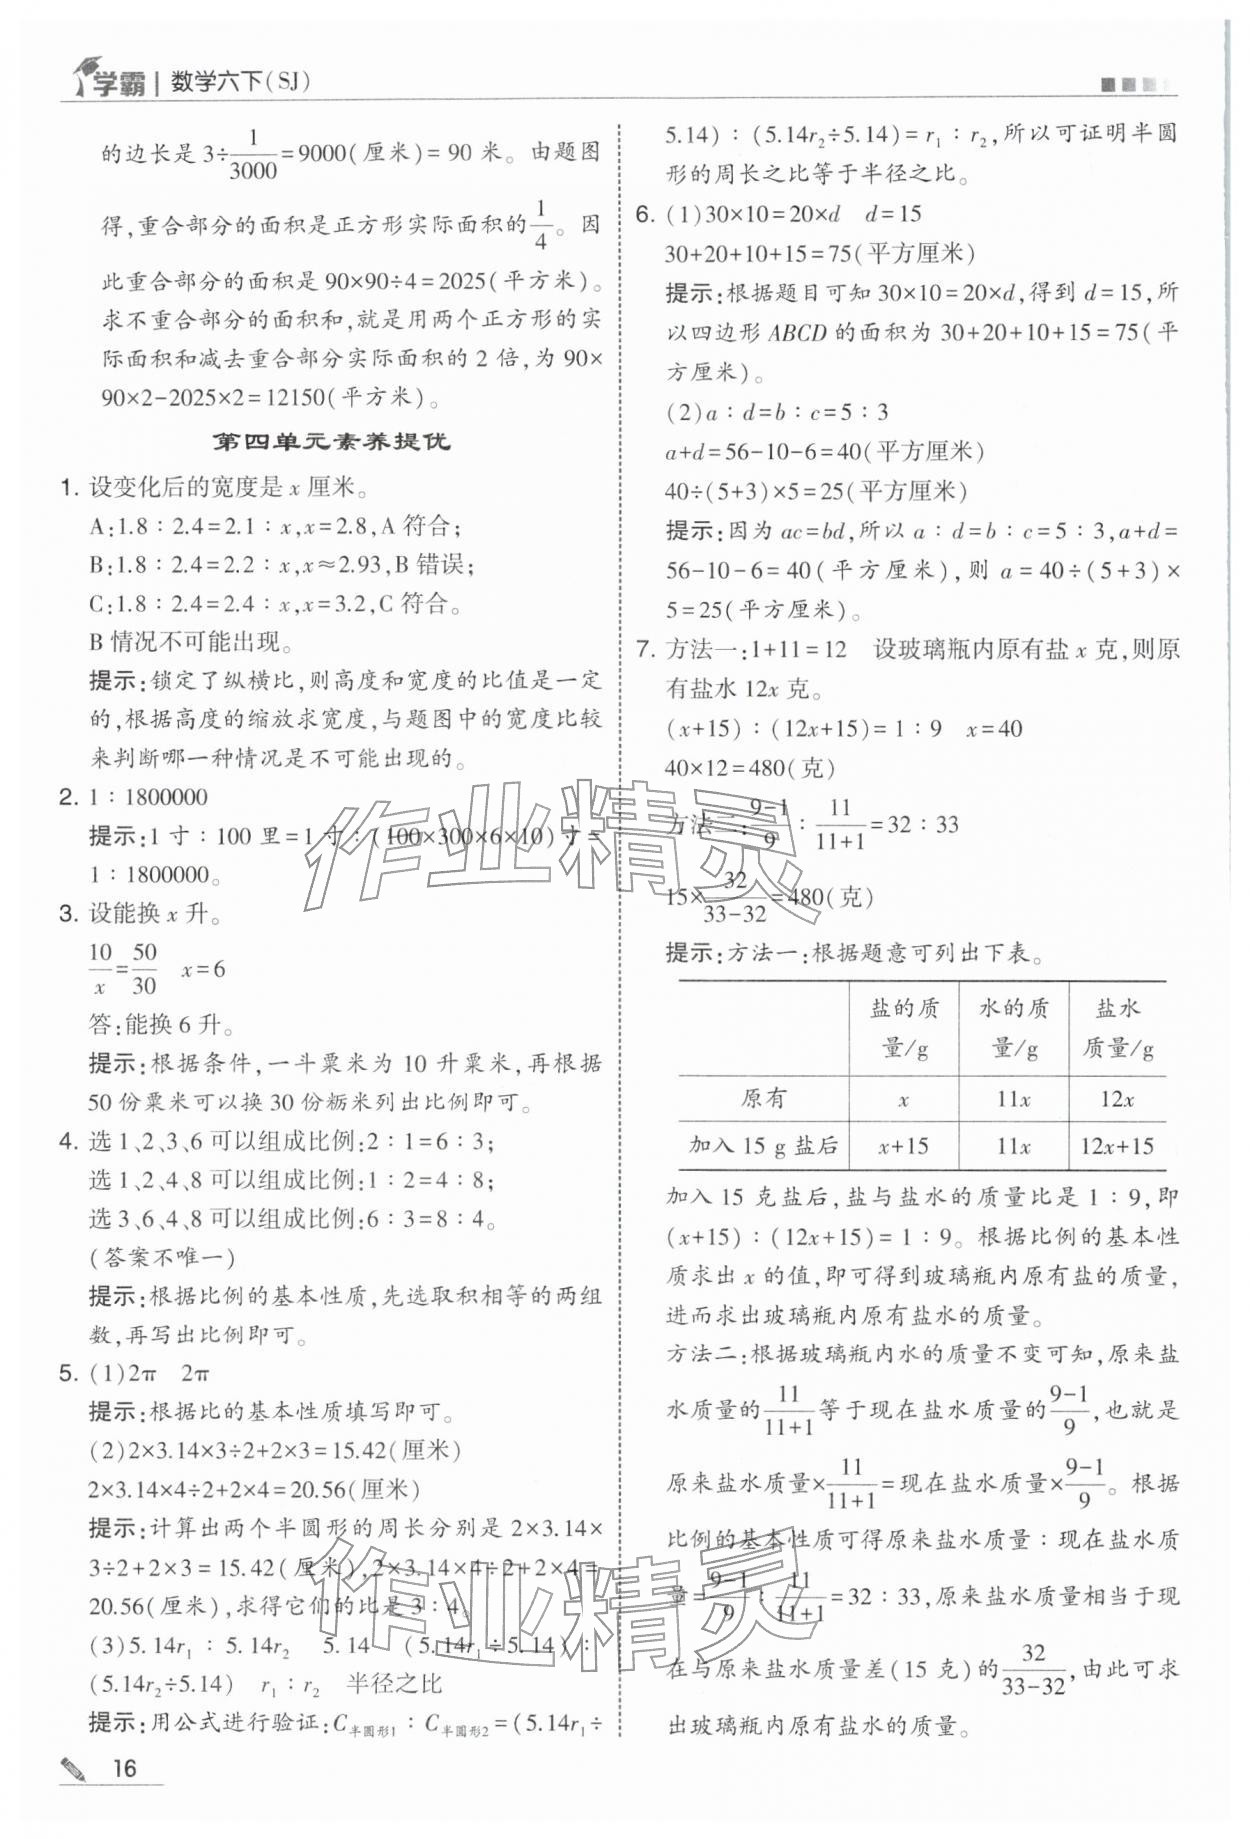 学霸 | 数学六下(SJ)
的边长是 3÷1/3000=9000(厘米)=90 米。由题图
得,重合部分的面积是正方形实际面积的1/4。因
此重合部分的面积是 90×90÷4=2025(平方米)。
求不重合部分的面积和,就是用两个正方形的实
际面积和减去重合部分实际面积的 2 倍,为 90×
90×2-2025×2=12150(平方米)。
第四单元素养提优
1. 设变化后的宽度是 x 厘米。
A:1.8∶2.4=2.1∶x,x=2.8,A 符合;
B:1.8∶2.4=2.2∶x,x≈2.93,B 错误;
C:1.8∶2.4=2.4∶x,x=3.2,C 符合。
B 情况不可能出现。
提示:锁定了纵横比,则高度和宽度的比值是一定
的,根据高度的缩放求宽度,与题图中的宽度比较
来判断哪一种情况是不可能出现的。
2. 1∶1800000
提示:1 寸∶100 里=1 寸∶(100×300×6×10)寸=
1∶1800000。
3. 设能换 x 升。
10/x=50/30 x=6
答:能换 6 升。
提示:根据条件,一斗粟米为 10 升粟米,再根据
50 份粟米可以换 30 份粝米列出比例即可。
4. 选 1、2、3、6 可以组成比例:2∶1=6∶3;
选 1、2、4、8 可以组成比例:1∶2=4∶8;
选 3、6、4、8 可以组成比例:6∶3=8∶4。
(答案不唯一)
提示:根据比例的基本性质,先选取积相等的两组
数,再写出比例即可。
5. (1)2π 2π
提示:根据比的基本性质填写即可。
(2)2×3.14×3÷2+2×3=15.42(厘米)
2×3.14×4÷2+2×4=20.56(厘米)
提示:计算出两个半圆形的周长分别是 2×3.14×
3÷2+2×3=15.42(厘米),2×3.14×4÷2+2×4=
20.56(厘米),求得它们的比是 3∶4。
(3)5.14r₁∶5.14r₂ 5.14 (5.14r₁÷5.14)∶
(5.14r₂÷5.14) r₁∶r₂ 半径之比
提示:用公式进行验证:C半圆形1∶C半圆形2=(5.14r₁÷
16
5.14)∶(5.14r₂÷5.14)=r₁∶r₂,所以可证明半圆
形的周长之比等于半径之比。
6. (1)30×10=20×d d=15
30+20+10+15=75(平方厘米)
提示:根据题目可知 30×10=20×d,得到 d=15,所
以四边形 ABCD 的面积为 30+20+10+15=75(平
方厘米)。
(2)a∶d=b∶c=5∶3
a+d=56-10-6=40(平方厘米)
40÷(5+3)×5=25(平方厘米)
提示:因为 ac=bd,所以 a∶d=b∶c=5∶3,a+d=
56-10-6=40(平方厘米),则 a=40÷(5+3)×
5=25(平方厘米)。
7. 方法一:1+11=12 设玻璃瓶内原有盐 x 克,则原
有盐水 12x 克。
(x+15)∶(12x+15)=1∶9 x=40
40×12=480(克)
方法二:9-1/9∶11/11+1=32∶33
15×32/33-32=480(克)
提示:方法一:根据题意可列出下表。
盐的质量/g 水的质量/g 盐水质量/g
原有 x 11x 12x
加入 15 g 盐后 x+15 11x 12x+15
加入 15 克盐后,盐与盐水的质量比是 1∶9,即
(x+15)∶(12x+15)=1∶9。根据比例的基本性
质求出 x 的值,即可得到玻璃瓶内原有盐的质量,
进而求出玻璃瓶内原有盐水的质量。
方法二:根据玻璃瓶内水的质量不变可知,原来盐
水质量的11/11+1等于现在盐水质量的9-1/9,也就是
原来盐水质量×11/11+1=现在盐水质量×9-1/9。根据
比例的基本性质可得原来盐水质量∶现在盐水质
量=9-1/9∶11/11+1=32∶33,原来盐水质量相当于现
在与原来盐水质量差(15 克)的32/33-32,由此可求
出玻璃瓶内原有盐水的质量。
作业精灵
作业精灵